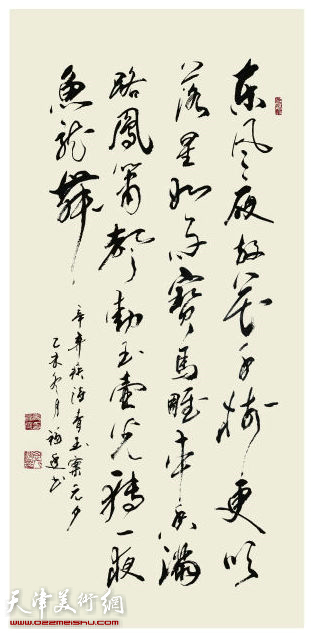 东风夜放花千树更吹
落星如雨宝马雕车香满
路凤箫声动玉壶光转一夜
鱼龙舞
辛弃疾词青玉案元夕
乙未年月
书
天津美术網
www.022meishu.com